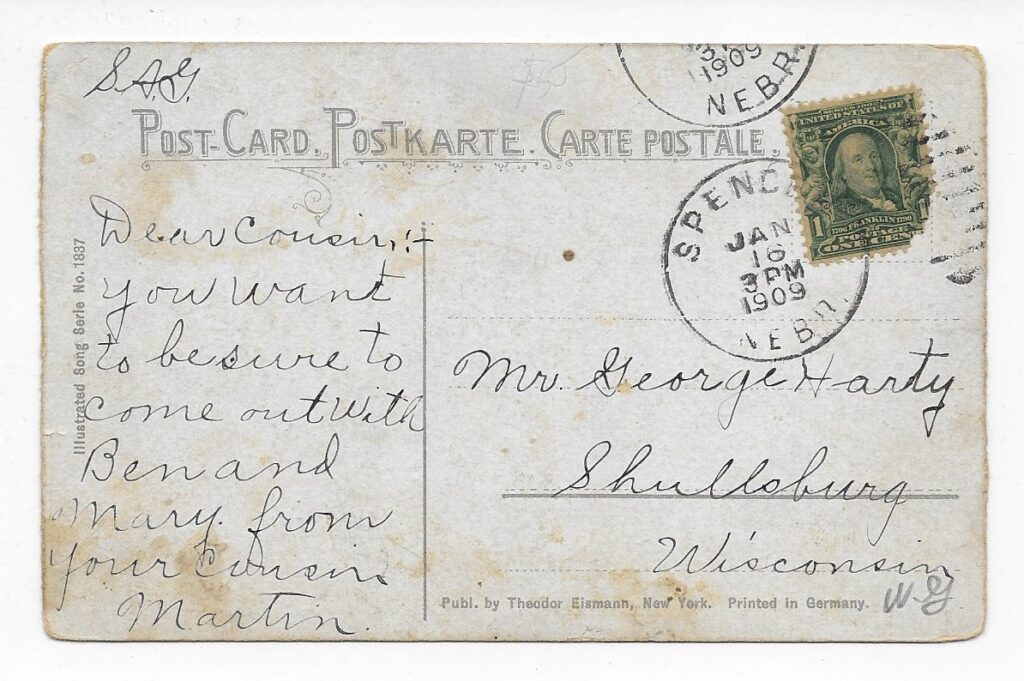 S.A.G.
1909
NEBR.
POST-CARD. POSTKARTE. CARTE POSTALE.
UNITED STATES OF
AMERICA
1 FRANKLIN 1
POSTAGE
ONE CENT
JAN
16
3 PM
1909
NEBR.
Dear Cousin:-
you want
to be sure to
come out with
Ben and
Mary. from
your cousin
Martin.
Illustrated Song Serie No. 1837
Mr. George Harty
Shullsburg
Wisconsin
Publ. by Theodor Eismann, New York. Printed in Germany.